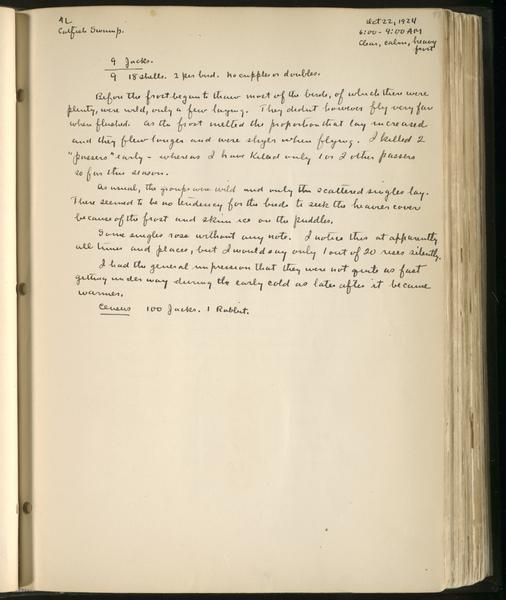 AL
Catfish Swamp.
Oct 22, 1924
6:00 - 9:00 AM
Clear, calm, heavy
frost
9 Jacks.
9 18 shells. 2 per bird. No cripples or doubles.
Before the frost began to thaw most of the birds, of which there were
plenty, were wild, only a few laying. They didnt however fly very far
when flushed. As the frost melted the proportion that lay increased
and they flew longer and were shyer when flying. I killed 2
"passers" early - whereas I have killed only 1 or 2 other passers
so far this season.
As usual, the groups were wild and only the scattered singles lay.
There seemed to be no tendency for the birds to seek the heavier cover
because of the frost and skim ice on the puddles.
Some singles rose without any note. I notice this at apparently
all times and places, but I would say only 1 out of 20 rises silently.
I had the general impression that they were not quite as fast
getting under way during the early cold as later after it became
warmer.
Census 100 Jacks. 1 Rabbit.